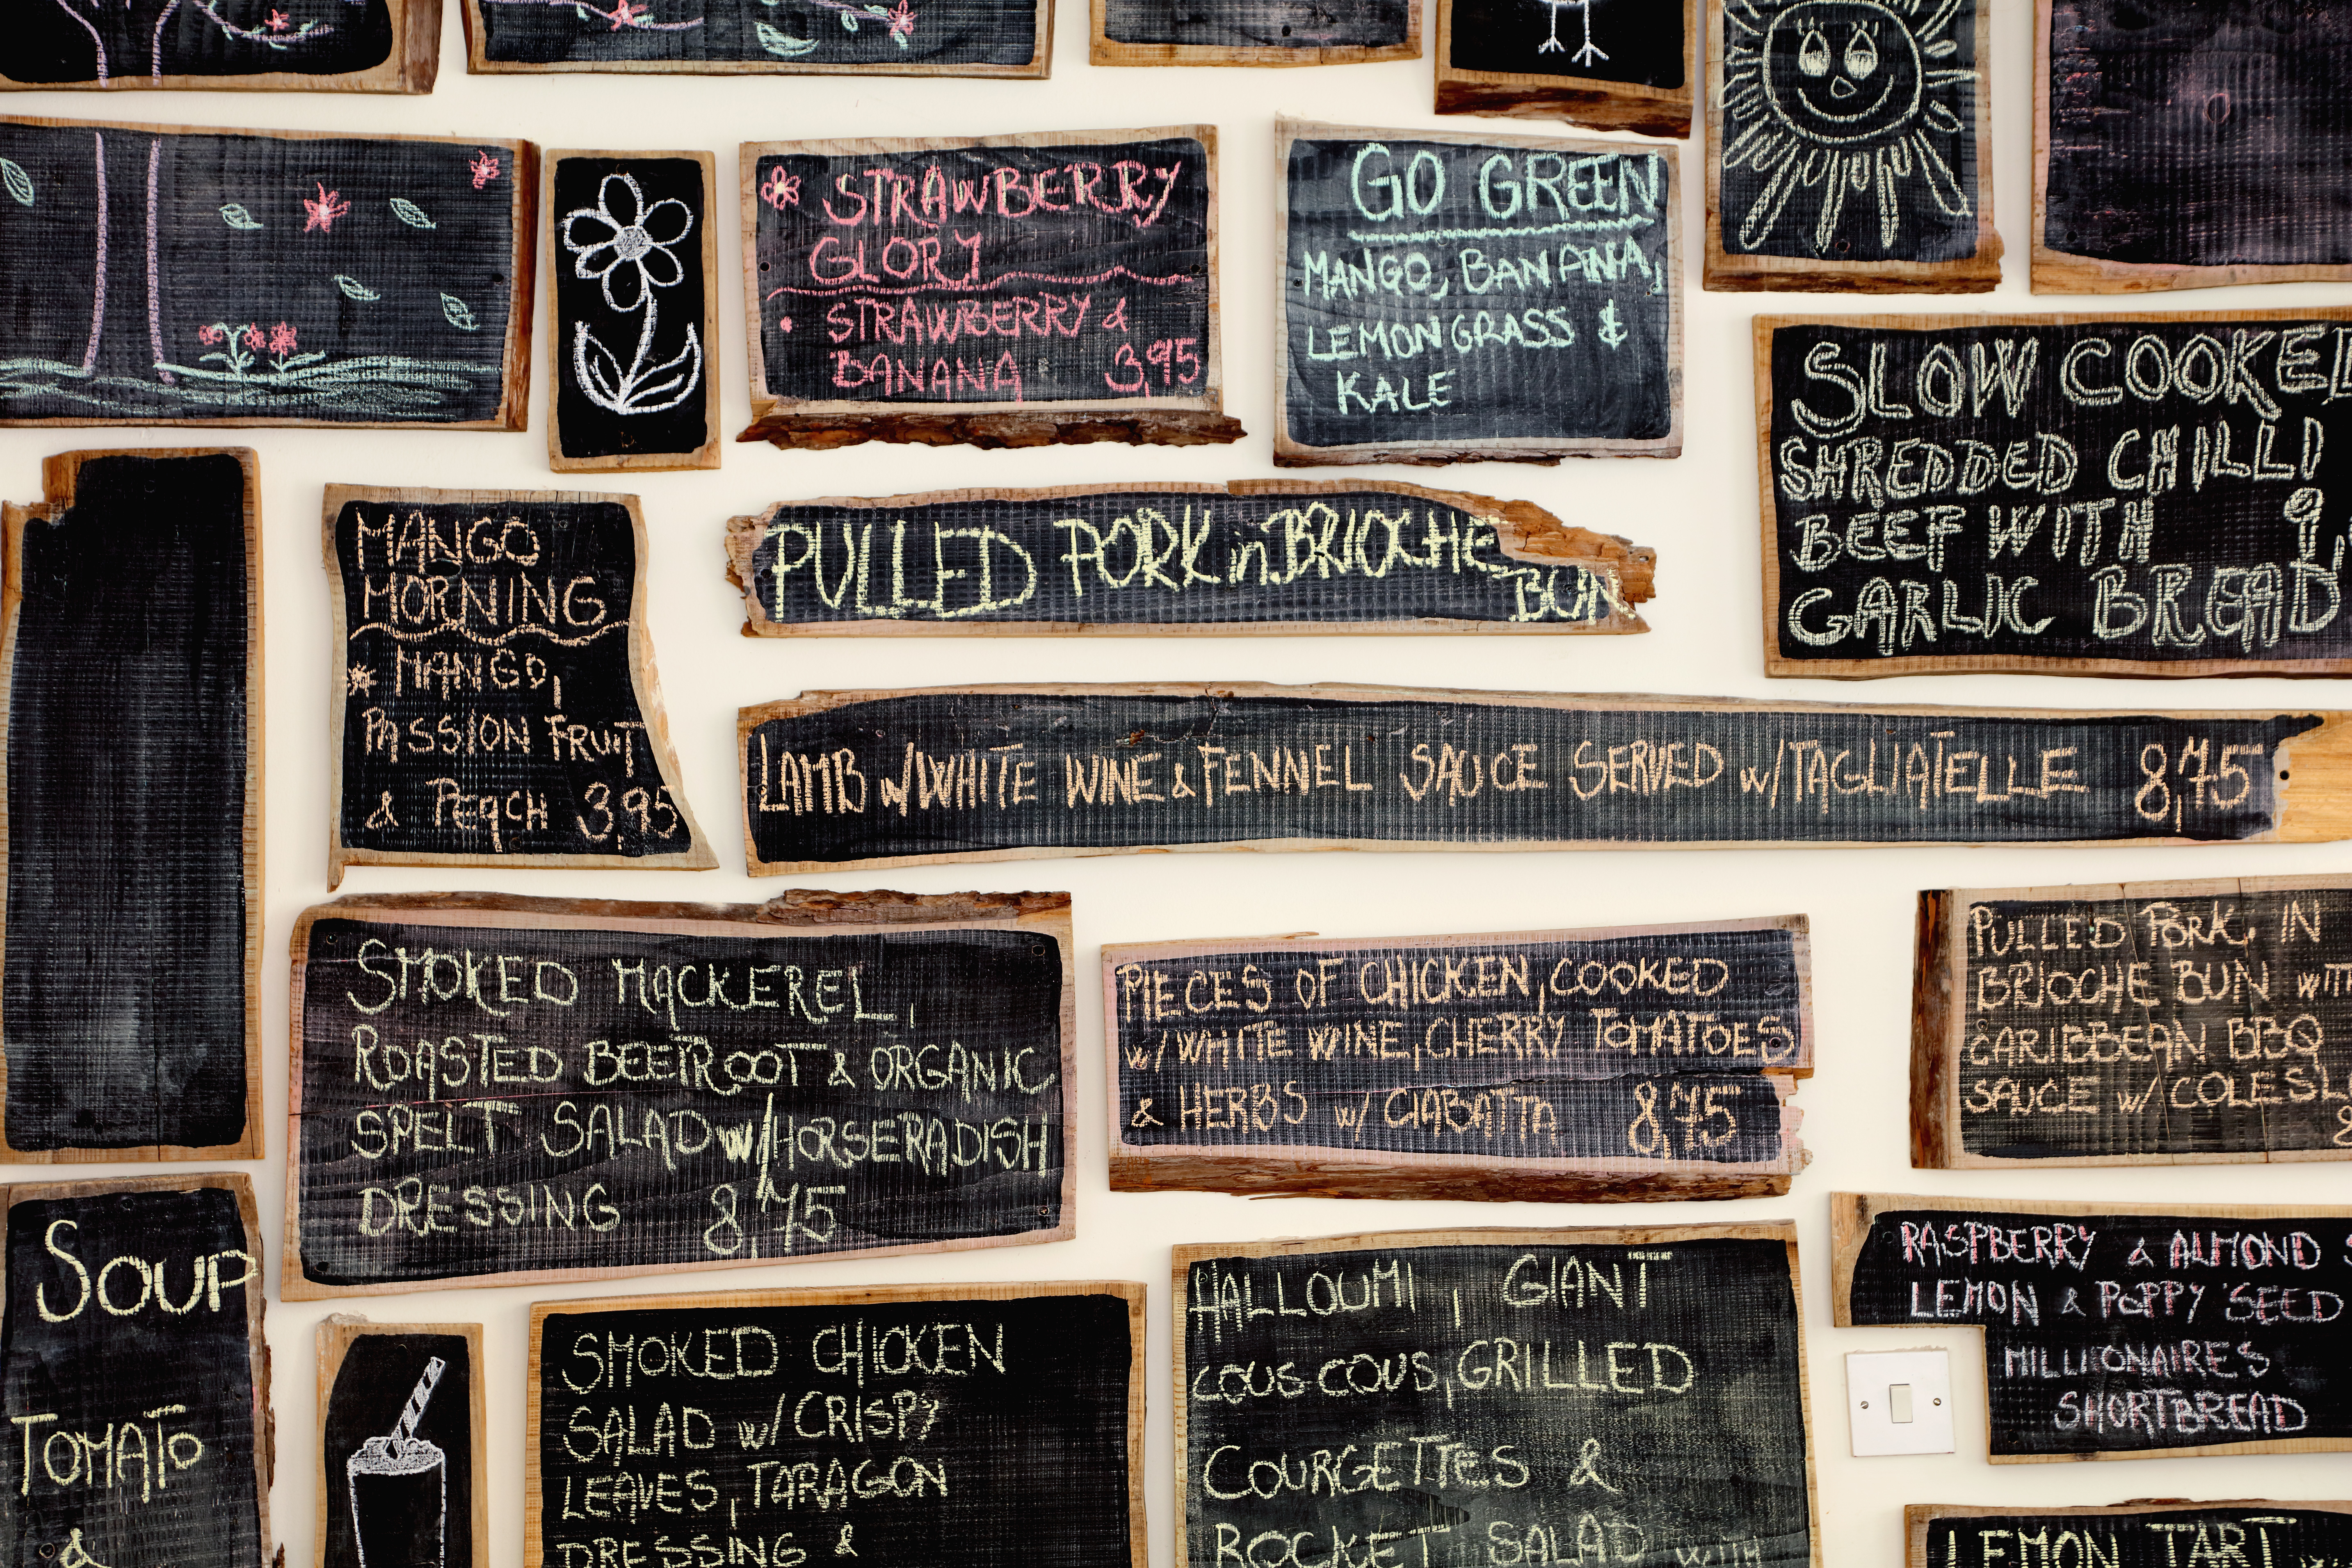 STRAWBERRY
GLORY
STRAWBERRY &
BANANA 3,95
GO GREEN
MANGO, BANANA,
LEMONGRASS &
KALE
SLOW COOKED
SHREDDED CHILLI
BEEF WITH 9,
GARLIC BREAD
MANGO
MORNING
MANGO,
PASSION FRUIT
& PEACH 3,95
PULLED PORK in BRIOCHE
BUN
LAMB w/WHITE WINE & FENNEL SAUCE SERVED w/TAGLIATELLE 8,75
SMOKED MACKEREL,
ROASTED BEETROOT & ORGANIC
SPELT SALAD w/HORSERADISH
DRESSING 8,75
PIECES OF CHICKEN, COOKED
w/WHITE WINE, CHERRY TOMATOES
& HERBS w/ CIABATTA 8,75
PULLED PORK IN
BRIOCHE BUN WITH
CARIBBEAN BBQ
SAUCE w/ COLESL
SOUP
TOMATO
&
SMOKED CHICKEN
SALAD w/CRISPY
LEAVES, TARAGON
DRESSING &
HALLOUMI, GIANT
COUS COUS, GRILLED
COURGETTES &
ROCKET SALAD WITH
RASPBERRY & ALMOND
LEMON & POPPY SEED
MILLIONAIRES
SHORTBREAD
LEMON TART